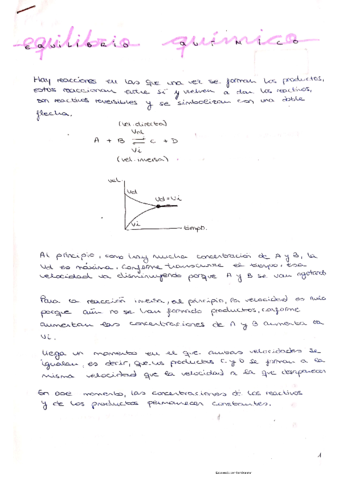 equilibrio químico
EQUILIBRIO QUÍMICO
Hay reacciones en las que una vez se forman los productos,
estos reaccionan entre sí y vuelven a dar los reactivos,
son reactivos reversibles y se simbolizan con una doble
flecha.
(vel. directa)
Vd
A + B ⇌ C + D
Vi
(vel. inversa)
vel.
Vd
Vd = Vi
Vi
tiempo.
Al principio, como hay mucha concentración de A y B, la
Vd es máxima. Conforme transcurre el tiempo, esa
velocidad va disminuyendo porque A y B se van agotando
Para la reacción inversa, al principio, la velocidad es nula
porque aún no se han formado productos, conforme
aumentan las concentraciones de A y B aumenta la
Vi.
Llega un momento en el que ambas velocidades se
igualan, es decir, que los productos C y D se forman a la
misma velocidad que la velocidad a la que desaparecen
En ese momento, las concentraciones de los reactivos
y de los productos permanecen constantes.
1